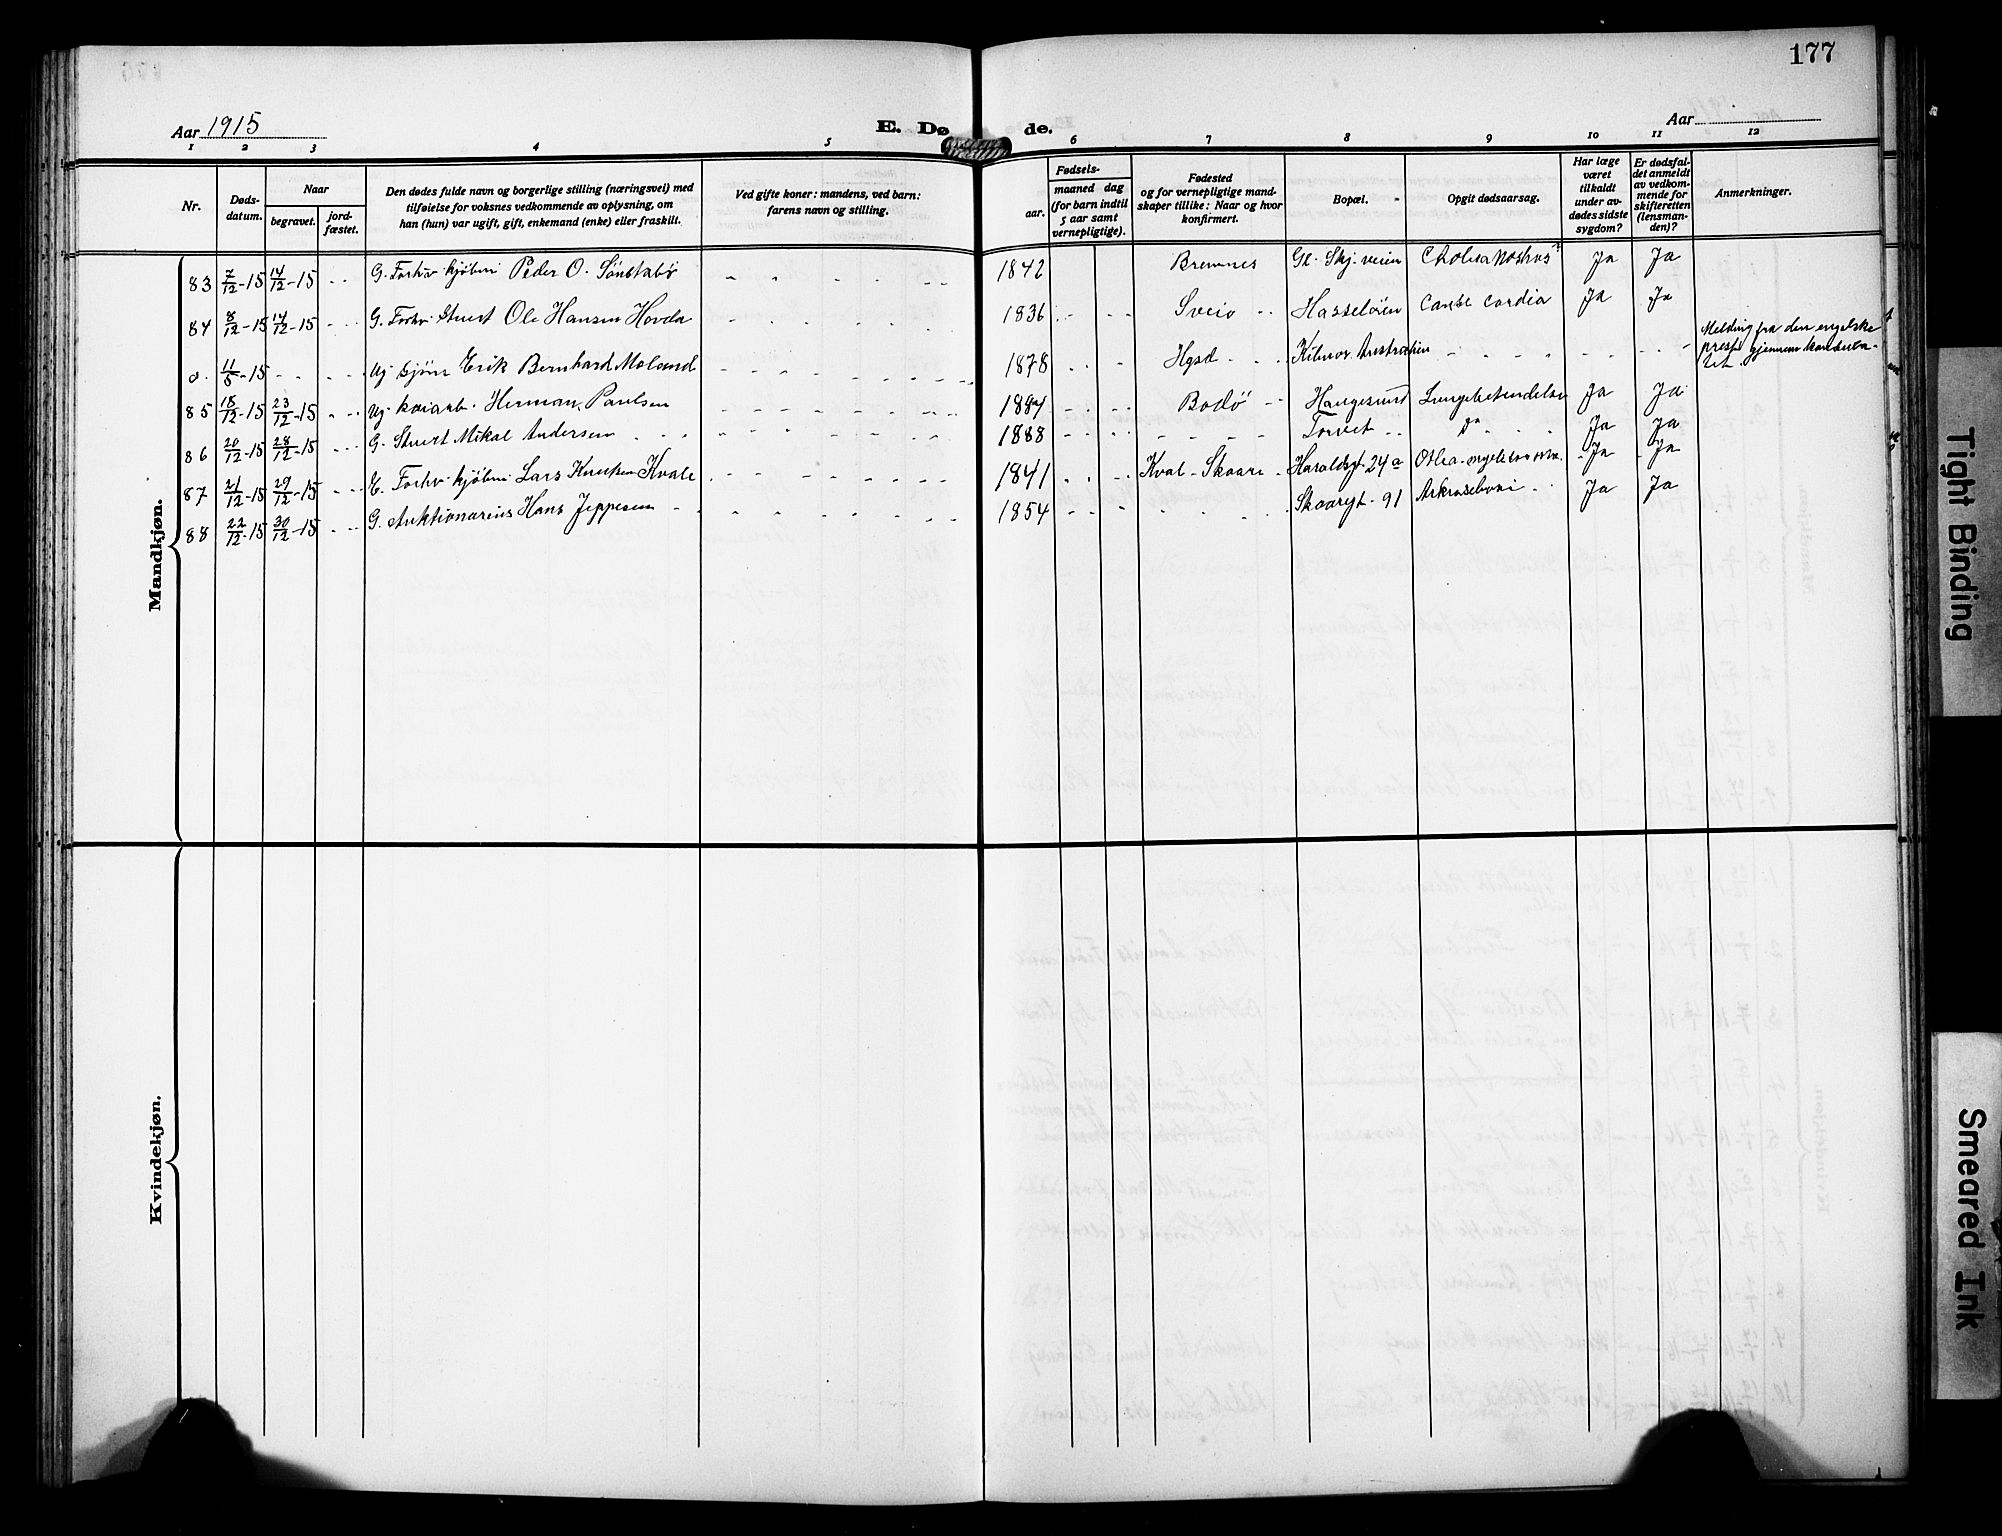 177
Aar 1915 E. Dø de. Aar
1 2 3 4 5 6 7 8 9 10 11 12
Nr.
Døds-
datum.
Naar
begravet.
jord-
fæstet.
Den dødes fulde navn og borgerlige stilling (næringsvei) med
tilføielse for voksnes vedkommende av oplysning, om
han (hun) var ugift, gift, enkemand (enke) eller fraskilt.
Ved gifte koner: mandens, ved barn:
farens navn og stilling.
Fødsels-
aar.
maaned dag
(for barn indtil
5 aar samt
vernepligtige).
Fødested
og for vernepligtige mand-
skaper tillike: Naar og hvor
konfirmert.
Bopæl.
Opgit dødsaarsag.
Har læge
været
tilkaldt
under av-
dødes sidste
sygdom?
Er dødsfal-
det anmeldt
av vedkom-
mende for
skifteretten
(lensman-
den)?
Anmerkninger.
Mandkjøn.
83 7/12-15 14/12-15 G. Forhv. kjøbm Peder O. Sønstabø 1842 Bremnes Gl. Skj. veien Ja Ja
84 8/12-15 14/12-15 G. Forhv. Stuert Ole Hansen Hovda 1836 Sveio Hasseløen Ja Ja
0. 11/5-15 Ug. sjøm Erik Bernhard Moland 1878 Hgsd Melding fra den engelske
prest gjennem konsula-
tet.
85 18/12-15 23/12-15 Ug. Herman Paulsen Bodø Haugesund Lungebetendelse Ja Ja
86 20/12-15 28/12-15 G. Stuert Mikal Andersen 1888 Torvet Do Ja Ja
87 21/12-15 29/12-15 E. Forhv. kjøbm Lars Knutsen Kvale 1841 Kval - Skaare Haraldsgt. 24a Ja Ja
88 22/12-15 30/12-15 G. Auktionarius Hans Jeppesen 1854 Skaaregt. 91 Ja Ja
Kvindekjøn.
Tight Binding
Smeared Ink